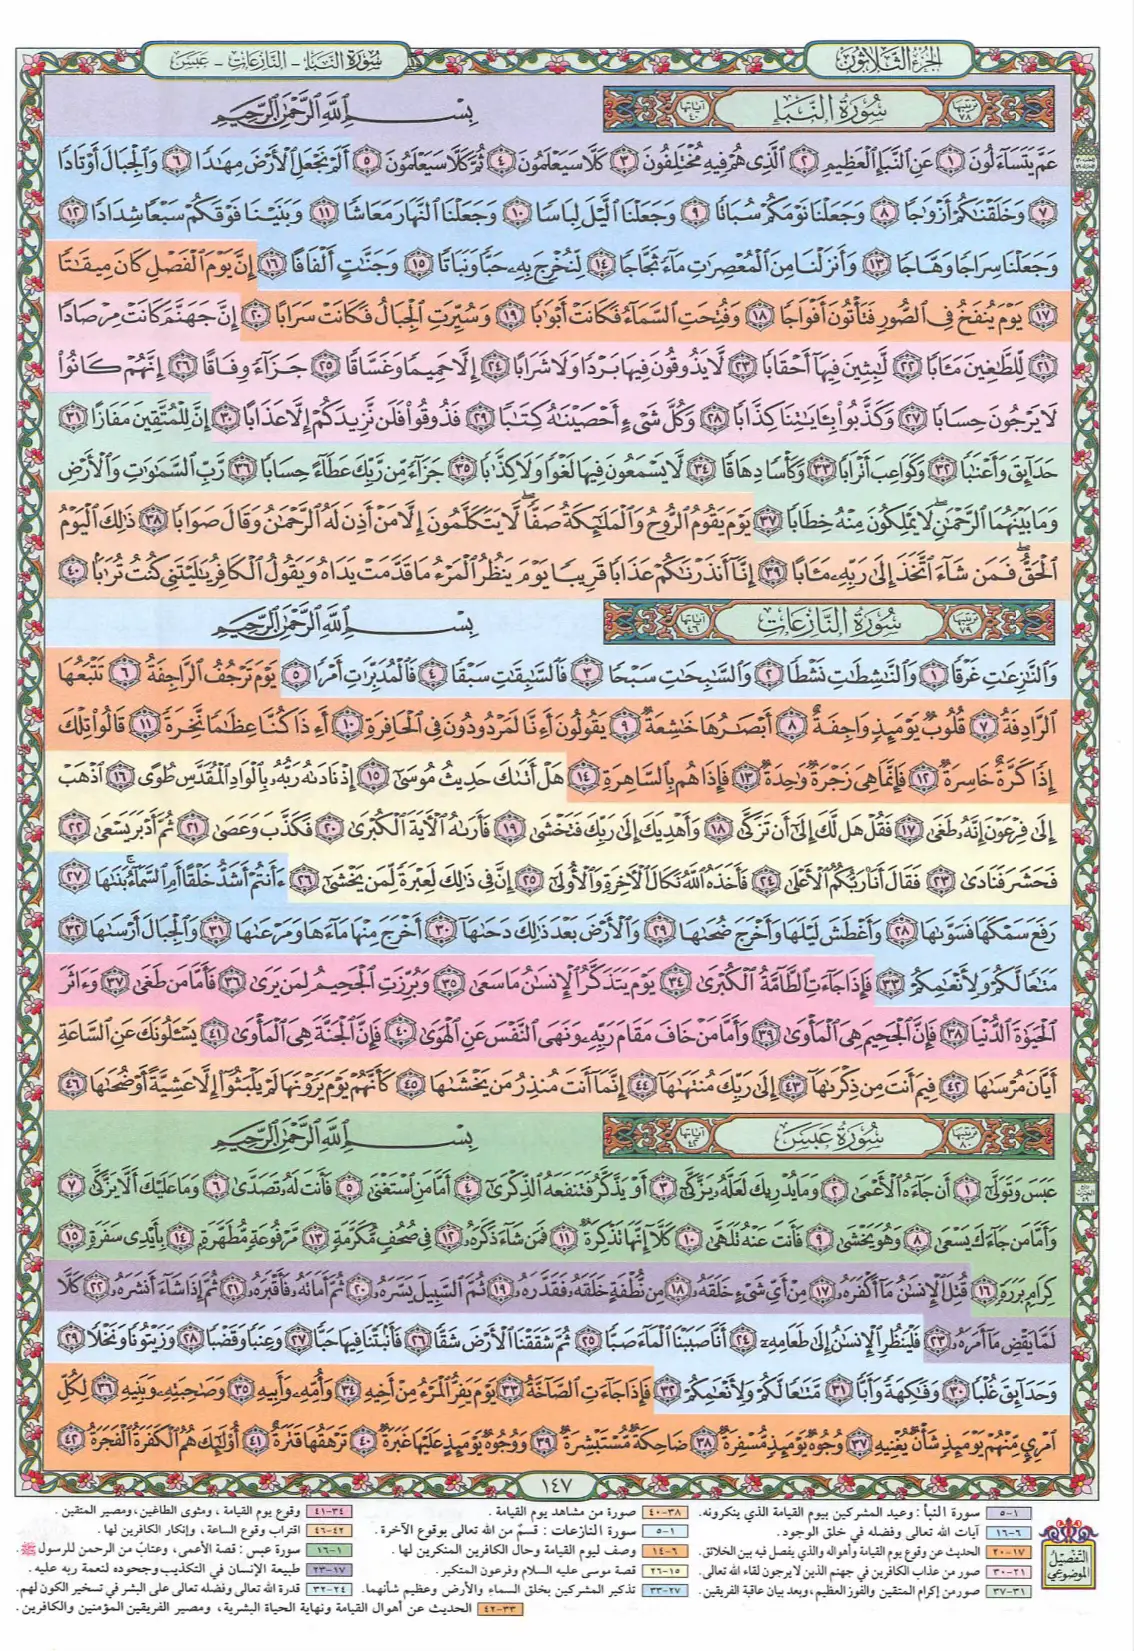 الجزء الثلاثون
سورة النبأ - النازعات - عبس
سُورَةُ النَّبَإِ
ترتيبها ٧٨
آياتها ٤٠
بِسْمِ اللَّهِ الرَّحْمَٰنِ الرَّحِيمِ
عَمَّ يَتَسَاءَلُونَ ١ عَنِ النَّبَإِ الْعَظِيمِ ٢ الَّذِي هُمْ فِيهِ مُخْتَلِفُونَ ٣ كَلَّا سَيَعْلَمُونَ ٤ ثُمَّ كَلَّا سَيَعْلَمُونَ ٥ أَلَمْ نَجْعَلِ الْأَرْضَ مِهَادًا ٦ وَالْجِبَالَ أَوْتَادًا
٧ وَخَلَقْنَاكُمْ أَزْوَاجًا ٨ وَجَعَلْنَا نَوْمَكُمْ سُبَاتًا ٩ وَجَعَلْنَا اللَّيْلَ لِبَاسًا ١٠ وَجَعَلْنَا النَّهَارَ مَعَاشًا ١١ وَبَنَيْنَا فَوْقَكُمْ سَبْعًا شِدَادًا ١٢
وَجَعَلْنَا سِرَاجًا وَهَّاجًا ١٣ وَأَنزَلْنَا مِنَ الْمُعْصِرَاتِ مَاءً ثَجَّاجًا ١٤ لِّنُخْرِجَ بِهِ حَبًّا وَنَبَاتًا ١٥ وَجَنَّاتٍ أَلْفَافًا ١٦ إِنَّ يَوْمَ الْفَصْلِ كَانَ مِيقَاتًا
١٧ يَوْمَ يُنفَخُ فِي الصُّورِ فَتَأْتُونَ أَفْوَاجًا ١٨ وَفُتِحَتِ السَّمَاءُ فَكَانَتْ أَبْوَابًا ١٩ وَسُيِّرَتِ الْجِبَالُ فَكَانَتْ سَرَابًا ٢٠ إِنَّ جَهَنَّمَ كَانَتْ مِرْصَادًا
٢١ لِّلطَّاغِينَ مَآبًا ٢٢ لَّابِثِينَ فِيهَا أَحْقَابًا ٢٣ لَّا يَذُوقُونَ فِيهَا بَرْدًا وَلَا شَرَابًا ٢٤ إِلَّا حَمِيمًا وَغَسَّاقًا ٢٥ جَزَاءً وِفَاقًا ٢٦ إِنَّهُمْ كَانُوا
لَا يَرْجُونَ حِسَابًا ٢٧ وَكَذَّبُوا بِآيَاتِنَا كِذَّابًا ٢٨ وَكُلَّ شَيْءٍ أَحْصَيْنَاهُ كِتَابًا ٢٩ فَذُوقُوا فَلَن نَّزِيدَكُمْ إِلَّا عَذَابًا ٣٠ إِنَّ لِلْمُتَّقِينَ مَفَازًا ٣١
حَدَائِقَ وَأَعْنَابًا ٣٢ وَكَوَاعِبَ أَتْرَابًا ٣٣ وَكَأْسًا دِهَاقًا ٣٤ لَّا يَسْمَعُونَ فِيهَا لَغْوًا وَلَا كِذَّابًا ٣٥ جَزَاءً مِّن رَّبِّكَ عَطَاءً حِسَابًا ٣٦ رَّبِّ السَّمَاوَاتِ وَالْأَرْضِ
وَمَا بَيْنَهُمَا الرَّحْمَٰنِ لَا يَمْلِكُونَ مِنْهُ خِطَابًا ٣٧ يَوْمَ يَقُومُ الرُّوحُ وَالْمَلَائِكَةُ صَفًّا لَّا يَتَكَلَّمُونَ إِلَّا مَنْ أَذِنَ لَهُ الرَّحْمَٰنُ وَقَالَ صَوَابًا ٣٨ ذَٰلِكَ الْيَوْمُ
الْحَقُّ فَمَن شَاءَ اتَّخَذَ إِلَىٰ رَبِّهِ مَآبًا ٣٩ إِنَّا أَنذَرْنَاكُمْ عَذَابًا قَرِيبًا يَوْمَ يَنظُرُ الْمَرْءُ مَا قَدَّمَتْ يَدَاهُ وَيَقُولُ الْكَافِرُ يَا لَيْتَنِي كُنتُ تُرَابًا ٤٠
سُورَةُ النَّازِعَاتِ
ترتيبها ٧٩
آياتها ٤٦
بِسْمِ اللَّهِ الرَّحْمَٰنِ الرَّحِيمِ
وَالنَّازِعَاتِ غَرْقًا ١ وَالنَّاشِطَاتِ نَشْطًا ٢ وَالسَّابِحَاتِ سَبْحًا ٣ فَالسَّابِقَاتِ سَبْقًا ٤ فَالْمُدَبِّرَاتِ أَمْرًا ٥ يَوْمَ تَرْجُفُ الرَّاجِفَةُ ٦ تَتْبَعُهَا
الرَّادِفَةُ ٧ قُلُوبٌ يَوْمَئِذٍ وَاجِفَةٌ ٨ أَبْصَارُهَا خَاشِعَةٌ ٩ يَقُولُونَ أَءِنَّا لَمَرْدُودُونَ فِي الْحَافِرَةِ ١٠ أَءِذَا كُنَّا عِظَامًا نَّخِرَةً ١١ قَالُوا تِلْكَ
إِذًا كَرَّةٌ خَاسِرَةٌ ١٢ فَإِنَّمَا هِيَ زَجْرَةٌ وَاحِدَةٌ ١٣ فَإِذَا هُم بِالسَّاهِرَةِ ١٤ هَلْ أَتَاكَ حَدِيثُ مُوسَىٰ ١٥ إِذْ نَادَاهُ رَبُّهُ بِالْوَادِ الْمُقَدَّسِ طُوًى ١٦ اذْهَبْ
إِلَىٰ فِرْعَوْنَ إِنَّهُ طَغَىٰ ١٧ فَقُلْ هَل لَّكَ إِلَىٰ أَن تَزَكَّىٰ ١٨ وَأَهْدِيَكَ إِلَىٰ رَبِّكَ فَتَخْشَىٰ ١٩ فَأَرَاهُ الْآيَةَ الْكُبْرَىٰ ٢٠ فَكَذَّبَ وَعَصَىٰ ٢١ ثُمَّ أَدْبَرَ يَسْعَىٰ ٢٢
فَحَشَرَ فَنَادَىٰ ٢٣ فَقَالَ أَنَا رَبُّكُمُ الْأَعْلَىٰ ٢٤ فَأَخَذَهُ اللَّهُ نَكَالَ الْآخِرَةِ وَالْأُولَىٰ ٢٥ إِنَّ فِي ذَٰلِكَ لَعِبْرَةً لِّمَن يَخْشَىٰ ٢٦ ءَأَنتُمْ أَشَدُّ خَلْقًا أَمِ السَّمَاءُ بَنَاهَا ٢٧
رَفَعَ سَمْكَهَا فَسَوَّاهَا ٢٨ وَأَغْطَشَ لَيْلَهَا وَأَخْرَجَ ضُحَاهَا ٢٩ وَالْأَرْضَ بَعْدَ ذَٰلِكَ دَحَاهَا ٣٠ أَخْرَجَ مِنْهَا مَاءَهَا وَمَرْعَاهَا ٣١ وَالْجِبَالَ أَرْسَاهَا ٣٢
مَتَاعًا لَّكُمْ وَلِأَنْعَامِكُمْ ٣٣ فَإِذَا جَاءَتِ الطَّامَّةُ الْكُبْرَىٰ ٣٤ يَوْمَ يَتَذَكَّرُ الْإِنسَانُ مَا سَعَىٰ ٣٥ وَبُرِّزَتِ الْجَحِيمُ لِمَن يَرَىٰ ٣٦ فَأَمَّا مَن طَغَىٰ ٣٧ وَآثَرَ
الْحَيَاةَ الدُّنْيَا ٣٨ فَإِنَّ الْجَحِيمَ هِيَ الْمَأْوَىٰ ٣٩ وَأَمَّا مَنْ خَافَ مَقَامَ رَبِّهِ وَنَهَى النَّفْسَ عَنِ الْهَوَىٰ ٤٠ فَإِنَّ الْجَنَّةَ هِيَ الْمَأْوَىٰ ٤١ يَسْأَلُونَكَ عَنِ السَّاعَةِ
أَيَّانَ مُرْسَاهَا ٤٢ فِيمَ أَنتَ مِن ذِكْرَاهَا ٤٣ إِلَىٰ رَبِّكَ مُنتَهَاهَا ٤٤ إِنَّمَا أَنتَ مُنذِرُ مَن يَخْشَاهَا ٤٥ كَأَنَّهُمْ يَوْمَ يَرَوْنَهَا لَمْ يَلْبَثُوا إِلَّا عَشِيَّةً أَوْ ضُحَاهَا ٤٦
سُورَةُ عَبَسَ
ترتيبها ٨٠
آياتها ٤٢
بِسْمِ اللَّهِ الرَّحْمَٰنِ الرَّحِيمِ
عَبَسَ وَتَوَلَّىٰ ١ أَن جَاءَهُ الْأَعْمَىٰ ٢ وَمَا يُدْرِيكَ لَعَلَّهُ يَزَّكَّىٰ ٣ أَوْ يَذَّكَّرُ فَتَنفَعَهُ الذِّكْرَىٰ ٤ أَمَّا مَنِ اسْتَغْنَىٰ ٥ فَأَنتَ لَهُ تَصَدَّىٰ ٦ وَمَا عَلَيْكَ أَلَّا يَزَّكَّىٰ ٧
وَأَمَّا مَن جَاءَكَ يَسْعَىٰ ٨ وَهُوَ يَخْشَىٰ ٩ فَأَنتَ عَنْهُ تَلَهَّىٰ ١٠ كَلَّا إِنَّهَا تَذْكِرَةٌ ١١ فَمَن شَاءَ ذَكَرَهُ ١٢ فِي صُحُفٍ مُّكَرَّمَةٍ ١٣ مَّرْفُوعَةٍ مُّطَهَّرَةٍ ١٤ بِأَيْدِي سَفَرَةٍ ١٥
كِرَامٍ بَرَرَةٍ ١٦ قُتِلَ الْإِنسَانُ مَا أَكْفَرَهُ ١٧ مِنْ أَيِّ شَيْءٍ خَلَقَهُ ١٨ مِن نُّطْفَةٍ خَلَقَهُ فَقَدَّرَهُ ١٩ ثُمَّ السَّبِيلَ يَسَّرَهُ ٢٠ ثُمَّ أَمَاتَهُ فَأَقْبَرَهُ ٢١ ثُمَّ إِذَا شَاءَ أَنشَرَهُ ٢٢ كَلَّا
لَمَّا يَقْضِ مَا أَمَرَهُ ٢٣ فَلْيَنظُرِ الْإِنسَانُ إِلَىٰ طَعَامِهِ ٢٤ أَنَّا صَبَبْنَا الْمَاءَ صَبًّا ٢٥ ثُمَّ شَقَقْنَا الْأَرْضَ شَقًّا ٢٦ فَأَنبَتْنَا فِيهَا حَبًّا ٢٧ وَعِنَبًا وَقَضْبًا ٢٨ وَزَيْتُونًا وَنَخْلًا ٢٩
وَحَدَائِقَ غُلْبًا ٣٠ وَفَاكِهَةً وَأَبًّا ٣١ مَّتَاعًا لَّكُمْ وَلِأَنْعَامِكُمْ ٣٢ فَإِذَا جَاءَتِ الصَّاخَّةُ ٣٣ يَوْمَ يَفِرُّ الْمَرْءُ مِنْ أَخِيهِ ٣٤ وَأُمِّهِ وَأَبِيهِ ٣٥ وَصَاحِبَتِهِ وَبَنِيهِ ٣٦ لِكُلِّ
امْرِئٍ مِّنْهُمْ يَوْمَئِذٍ شَأْنٌ يُغْنِيهِ ٣٧ وُجُوهٌ يَوْمَئِذٍ مُّسْفِرَةٌ ٣٨ ضَاحِكَةٌ مُّسْتَبْشِرَةٌ ٣٩ وَوُجُوهٌ يَوْمَئِذٍ عَلَيْهَا غَبَرَةٌ ٤٠ تَرْهَقُهَا قَتَرَةٌ ٤١ أُولَٰئِكَ هُمُ الْكَفَرَةُ الْفَجَرَةُ ٤٢
١٤٧
التفصيل الموضوعي
١-٥ سورة النبأ : وعيد المشركين بيوم القيامة الذي ينكرونه.
٦-١٦ آيات الله تعالى وفضله في خلق الوجود.
١٧-٢٠ الحديث عن وقوع يوم القيامة وأهواله والذي يفصل فيه بين الخلائق.
٢١-٣٠ صور من عذاب الكافرين في جهنم الذين لا يرجون لقاء الله تعالى.
٣١-٣٧ صور من إكرام المتقين والفوز العظيم، وبعد بيان عاقبة الفريقين.
٣٨-٤٠ صورة من مشاهد يوم القيامة .
١-٥ سورة النازعات : قسمٌ من الله تعالى بوقوع الآخرة.
٦-١٤ وصف ليوم القيامة وحال الكافرين المنكرين لها .
١٥-٢٦ قصة موسى عليه السلام وفرعون المتكبر.
٢٧-٣٣ تذكير المشركين بخلق السماء والأرض وعظيم شأنهما.
٣٤-٤١ وقوع يوم القيامة ، ومثوى الطاغين، ومصير المتقين .
٤٢-٤٦ اقتراب وقوع الساعة، وإنكار الكافرين لها .
١-١٦ سورة عبس : قصة الأعمى، وعتابٌ من الرحمن للرسول ﷺ.
١٧-٢٣ طبيعة الإنسان في التكذيب وجحوده لنعمة ربه عليه .
٢٤-٣٢ قدرة الله تعالى وفضله تعالى على البشر في تسخير الكون لهم.
٣٣-٤٢ الحديث عن أهوال القيامة ونهاية الحياة البشرية ، ومصير الفريقين المؤمنين والكافرين.